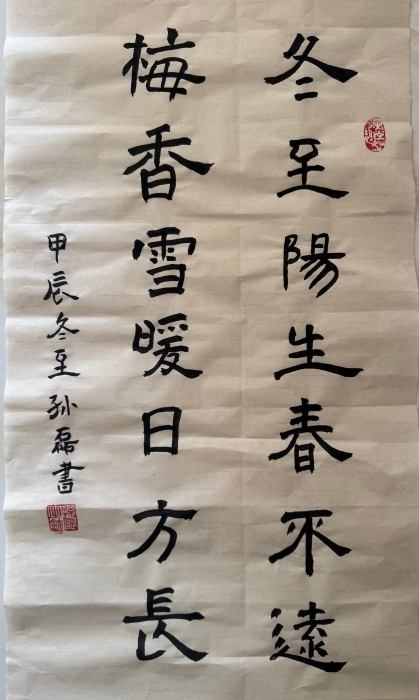 冬至陽生春不遠
梅香雪暖日方長
甲辰冬至孙磊書